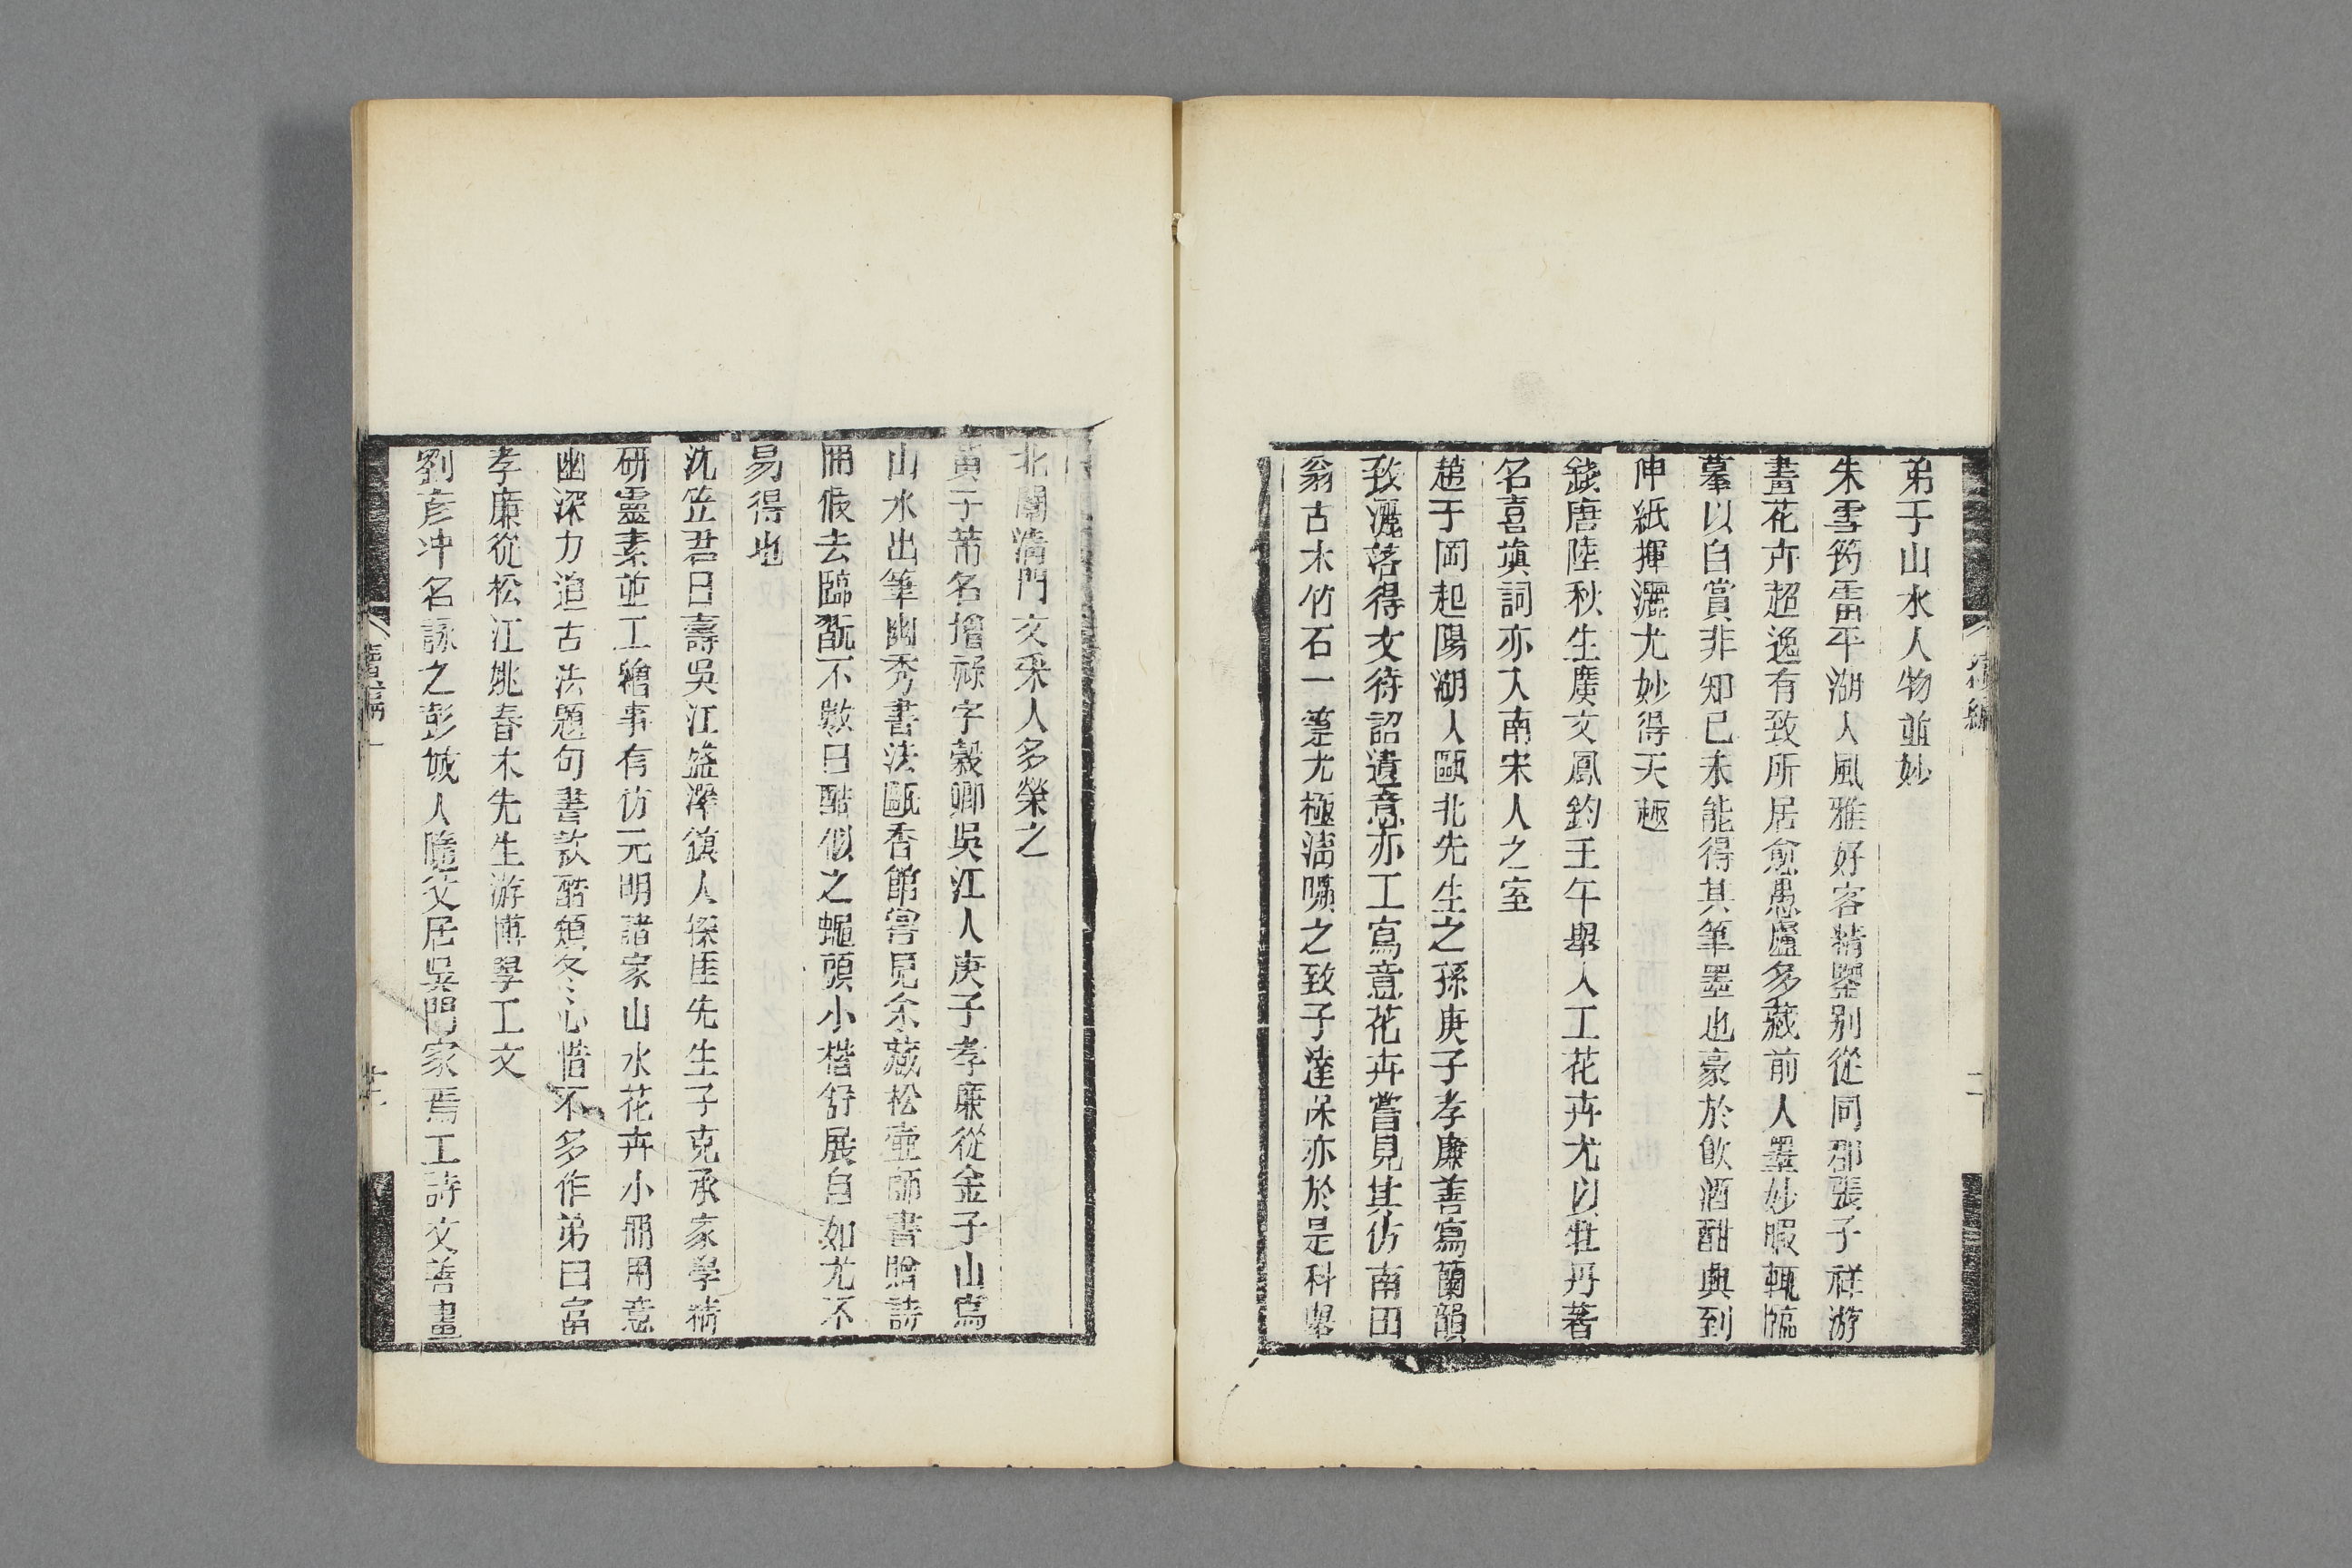 弟于山水人物並妙
朱雪筠霱平湖人風雅好客精鑒别從同郡張子祥游
畫花卉超逸有致所居愈愚廬多藏前人墨妙暇輒臨
摹以自賞非知已未能得其筆墨也豪於飲酒酣興到
伸紙揮灑尤妙得天趣
錢唐陸秋生廣文鳳鈞壬午舉人工花卉尤以牡丹著
名喜填詞亦入南宋人之室
趙于岡起陽湖人甌北先生之孫庚子孝廉善寫蘭韻
致灑落得文待詔遺意亦工寫意花卉嘗見其仿南田
翁古木竹石一箑尤極清曠之致子達保亦於是科舉
北闈清門文采人多榮之
黃子芾名增祿字穀卿吳江人庚子孝廉從金子山寫
山水出筆幽秀書法甌香館嘗見余藏松壺師書贈詩
冊假去臨翫不數日酷似之蠅頭小楷舒展自如尤不
易得也
沈笠君曰壽吳江盛澤鎮人探厓先生子克承家學精
研靈素並工繪事有仿元明諸家山水花卉小冊用意
幽深力追古法題句書款酷類冬心惜不多作弟曰富
孝廉從松江姚春木先生游博學工文
劉彥冲名詠之彭城人隨父居吳門家焉工詩文善畫